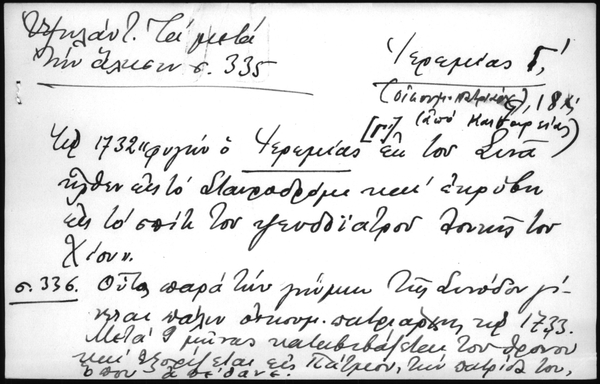 Ὑψηλάντ. Τά μετά
τήν ἅλωσιν σ. 335
Ἱερεμίας Γ΄,
(οἰκουμ. πατριάρχης), 18
(ἀπό Καισαρείας)
Τῷ 1732 φυγών ὁ Ἱερεμίας ἐκ τοῦ Σινᾶ
ἦλθεν εἰς τό Σταυροδρόμι καί ἐκρύβη
εἰς τό σπίτι τοῦ ψευδοϊατροῦ τοῦ
Χίου.
σ. 336. Οὗτος παρά τήν γνώμην τῆς Συνόδου γί-
νεται πάλιν οἰκουμ. πατριάρχης τῷ 1733.
Μετά μῆνας καταβιβάζεται τοῦ θρόνου
καί ἐξορίζεται εἰς Πάτμον, τήν πατρίδα του,
ὅπου ἀπέθανε.